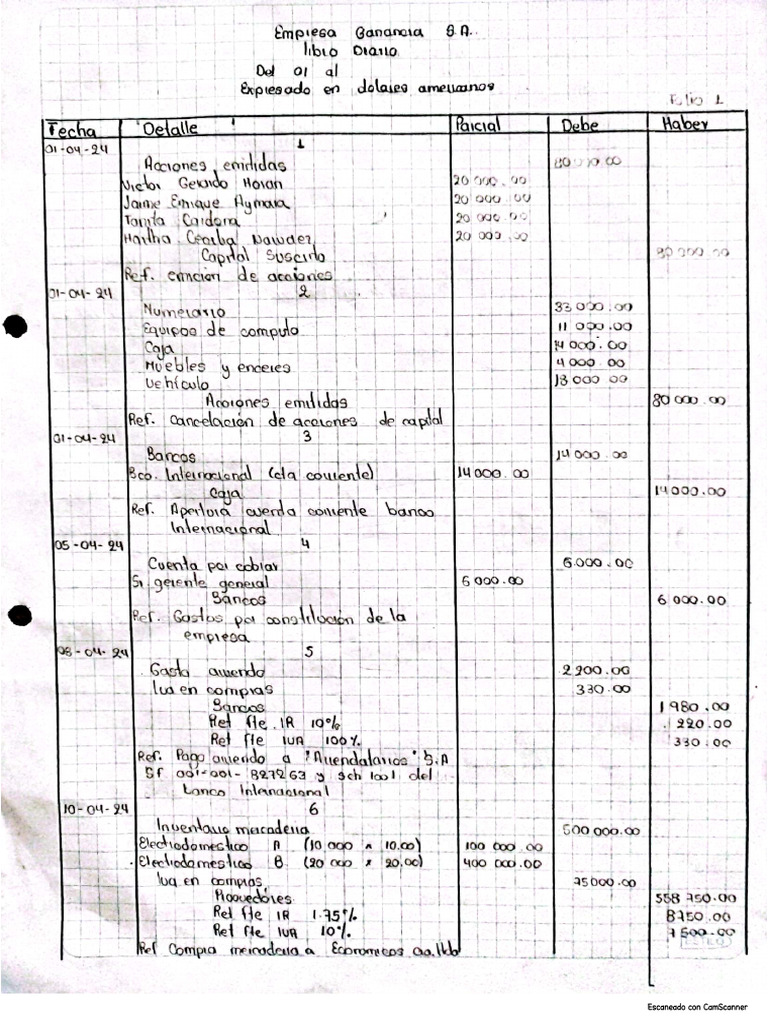 Empresa Ganancia S.A.
libro Diario
Del 01 al
Expresado en dolares americanos
Folio 1
Fecha Detalle Parcial Debe Haber
01-04-24 1
Acciones emitidas 80 000.00
Victor Gerardo Moran 20 000.00
Jaime Enrique Aymara 20 000.00
Tanita Cardora 20 000.00
Martha 20 000.00
Capital Suscrito 80 000.00
Ref. emicion de acciones
01-04-24 2
Numerario 33 000.00
Equipos de computo 11 000.00
Caja 14 000.00
Muebles y enceres 4 000.00
Vehículo 18 000 00
Acciones emitidas 80 000.00
Ref. Cancelación de acciones de capital
01-04-24 3
Bancos 14 000.00
Bco. Internacional (cta corriente) 14 000.00
Caja 14 000.00
Ref. Apertura cuenta corriente banco
Internacional
05-04-24 4
Cuenta por cobrar 6.000.00
Sr. gerente general 6 000.00
Bancos 6 000.00
Ref. Gastos por constitución de la
empresa
08-04-24 5
Gasto arriendo 2 200.00
Iva en compras 330.00
Bancos 1 980.00
Ret fte IR 10% 220.00
Ret fte IVA 100% 330.00
Ref. Pago arriendo a "Arrendatarios" S.A
Sf 001-001-827263 y sch 1001 del
banco Internacional
10-04-24 6
Inventario mercaderia 500 000.00
Electrodomestico A (10 000 x 10.00) 100 000.00
Electrodomestico B (20 000 x 20.00) 400 000.00
Iva en compras 75 000.00
Proveedores 558 750.00
Ret fte IR 1.75% 8750.00
Ret fte IVA 10% 7 500.00
Ref Compra mercaderia a Economicos
Escaneado con CamScanner